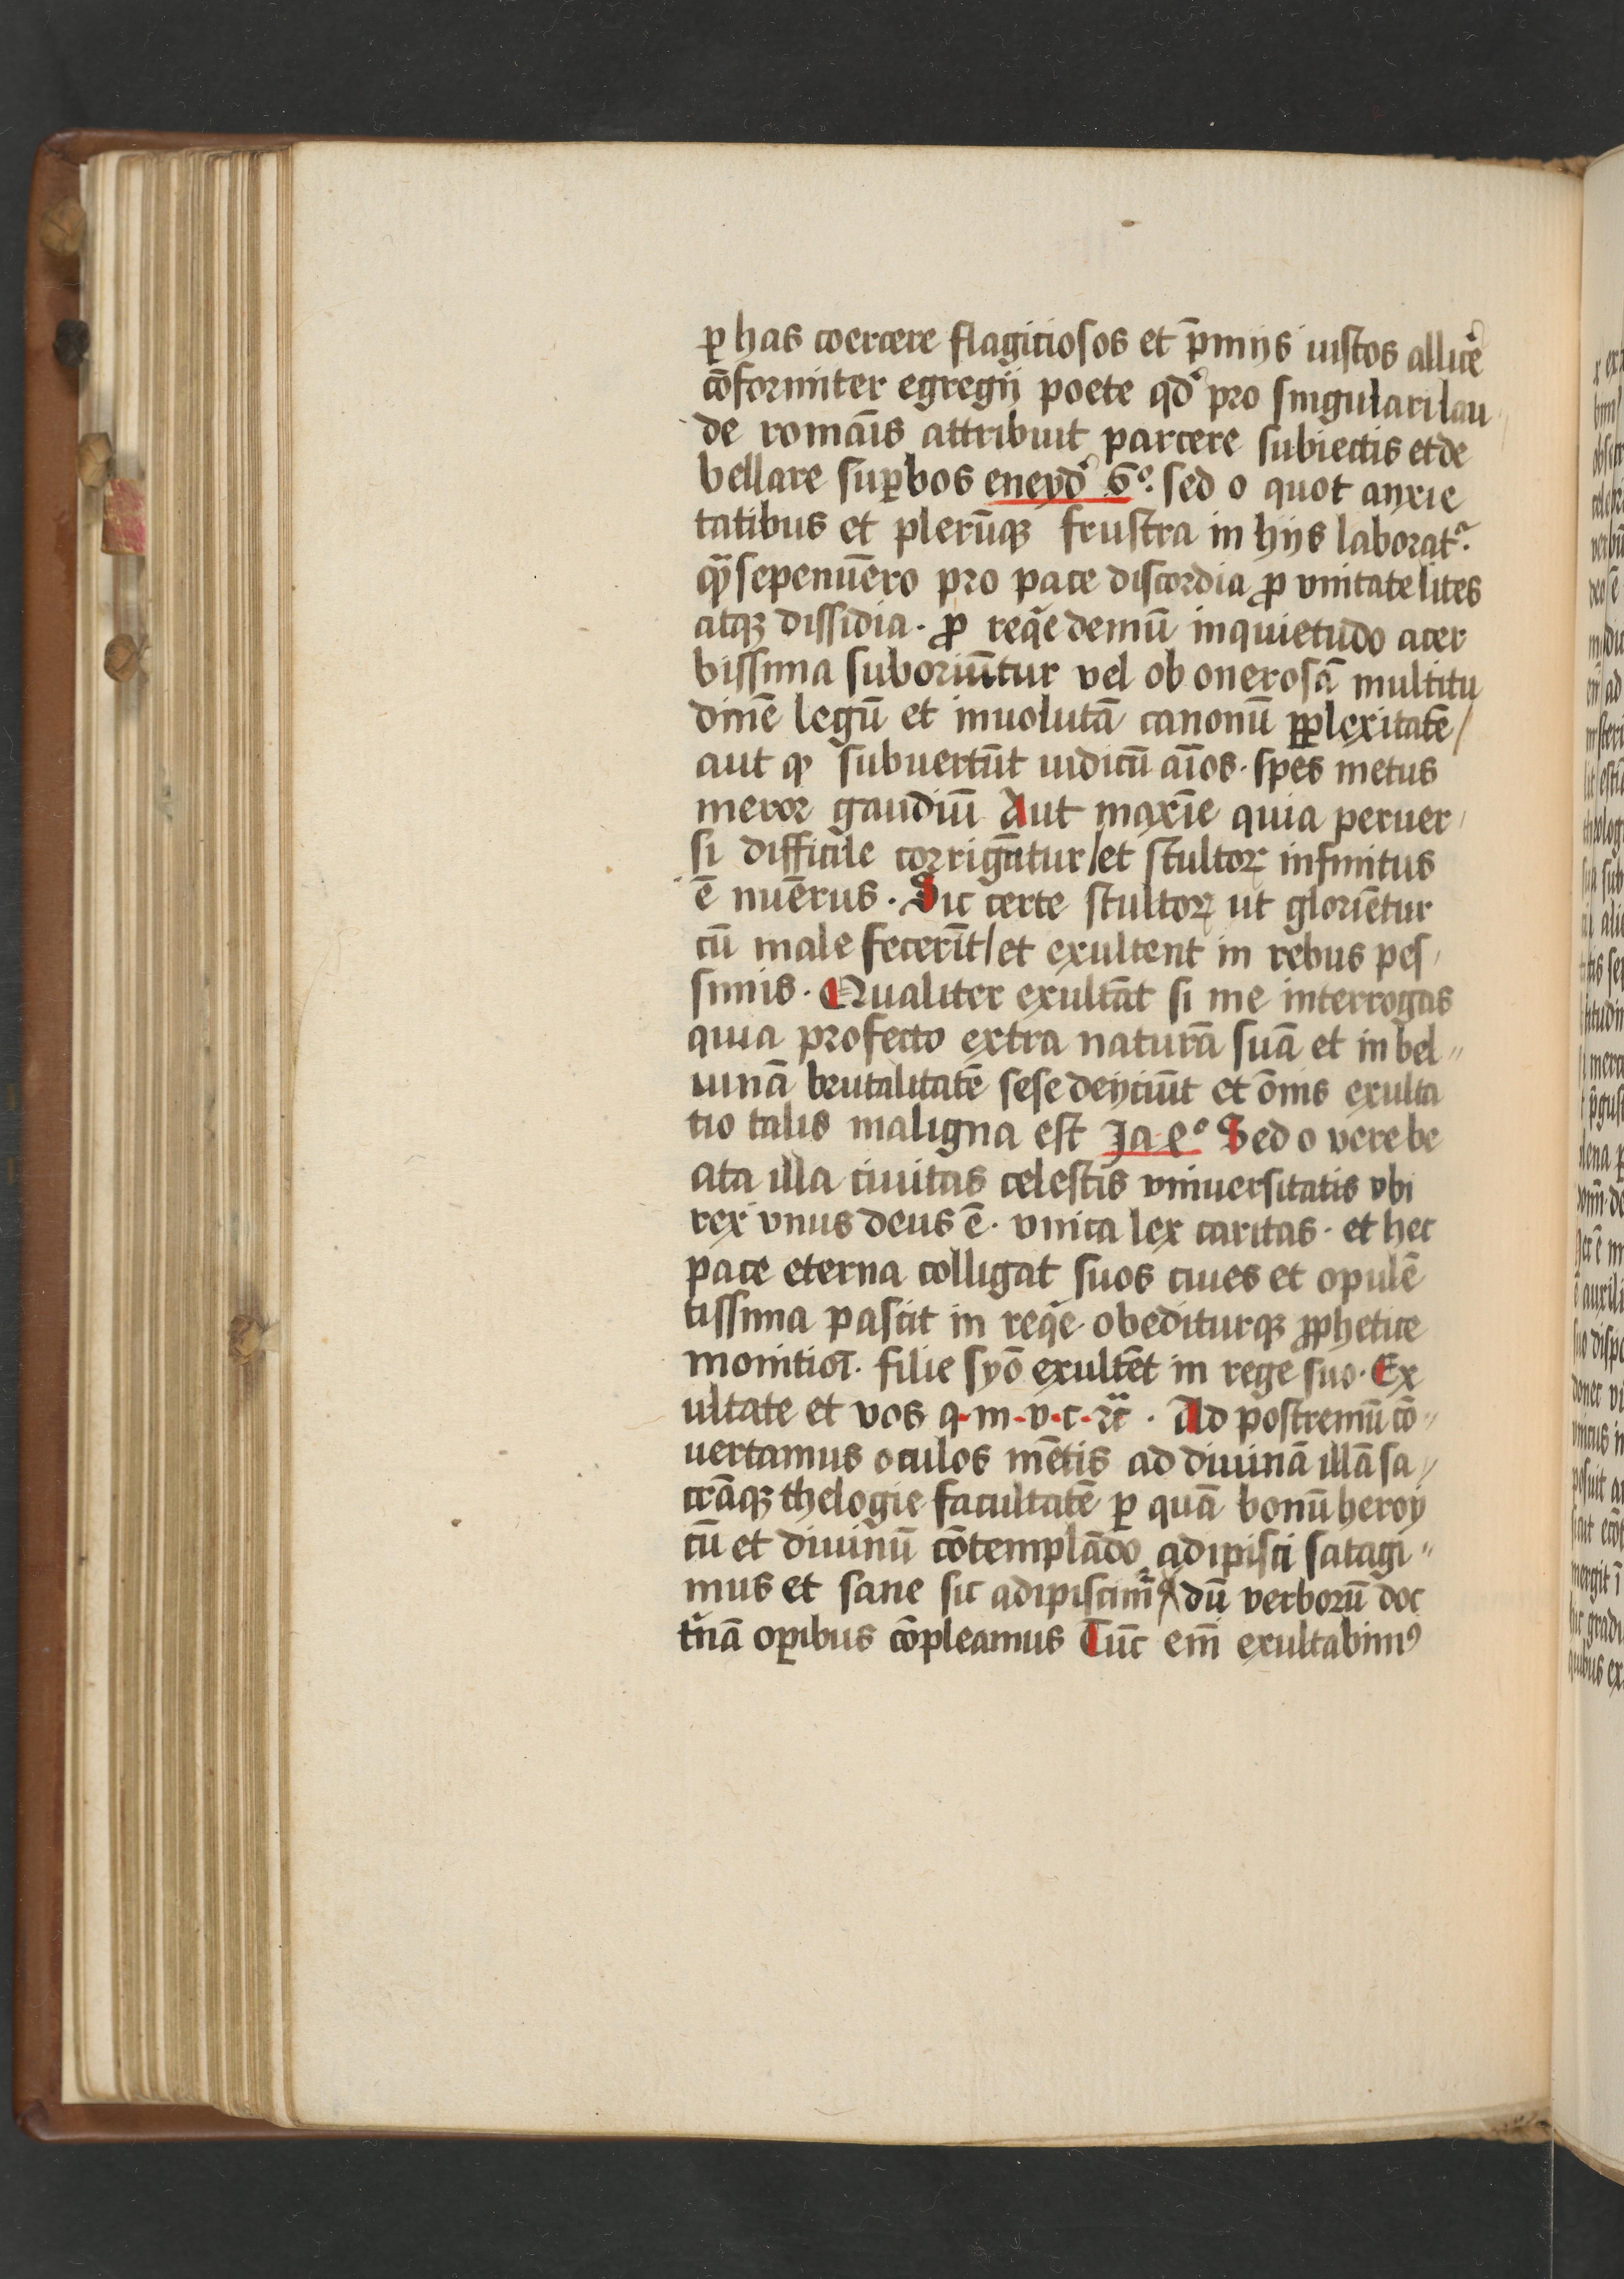 ꝑ has coercere flagiciosos et p̄mijs iustos allicẽ
cōformiter egregij poete qđ pro singulari lau
de romāis attribuit parcere subiectis et de
bellare suꝑbos eneyđ 6º. sed o quot anxie
tatibus et plerūqꝫ frustra in hijs laborat᷑.
qꝫ sepenūero pro pace discordia ꝓ vnitate lites
atqꝫ dissidia · ꝓ reqͥe demū inquietudo acer
bissima suboriūtur vel ob onerosā multitu
dinē legū et inuolutā canonū ꝑplexitatē /
aut ꝙ subuertūt iudicū aīos · spes metus
meror gaudiū Aut maxīe quia peruer
si difficile corrigūtur / et stultoꝝ infinitus
ē nuērus · Sic certe stultoꝝ ut gloriētur
cū male fecerīt / et exultent in rebus pes
simis · Qualiter exultāt si me interrogas
quia profecto extra naturā suā et in bel〃
uinā brutalitatē sese deijciūt et ōnis exulta
tio talis maligna est Ja · 4º Sed o vere be
ata illa ciuitas celestis vniuersitatis vbi
rex vnus deus ē · vnica lex caritas · et hec
pace eterna colligat suos ciues et opulē
tissima pascit in reqͥe obediturqꝫ ꝓphetice
monitioī · filie syō exultēt in rege suo · Ex
ultate et vos q · m · v · c · ⁊c̈ · Ad postremū cō〃
uertamus oculos mētis ad diuinā illā sa〃
crāqꝫ thelogie facultatē ꝑ quā bonū heroy
cū et diuinū cōtemplādo adipisci satagi〃
mus et sane sic adipiscim̃ dū verborū doc
t̃nā oꝑibus cōpleamus Tūc em̄ exultabimꝰ